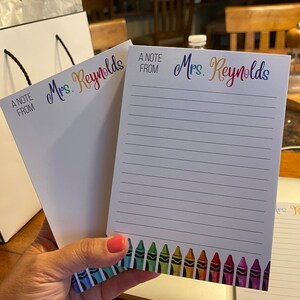 A NOTE
FROM
Mrs. Reynolds
A NOTE
FROM
Mrs. Reynolds